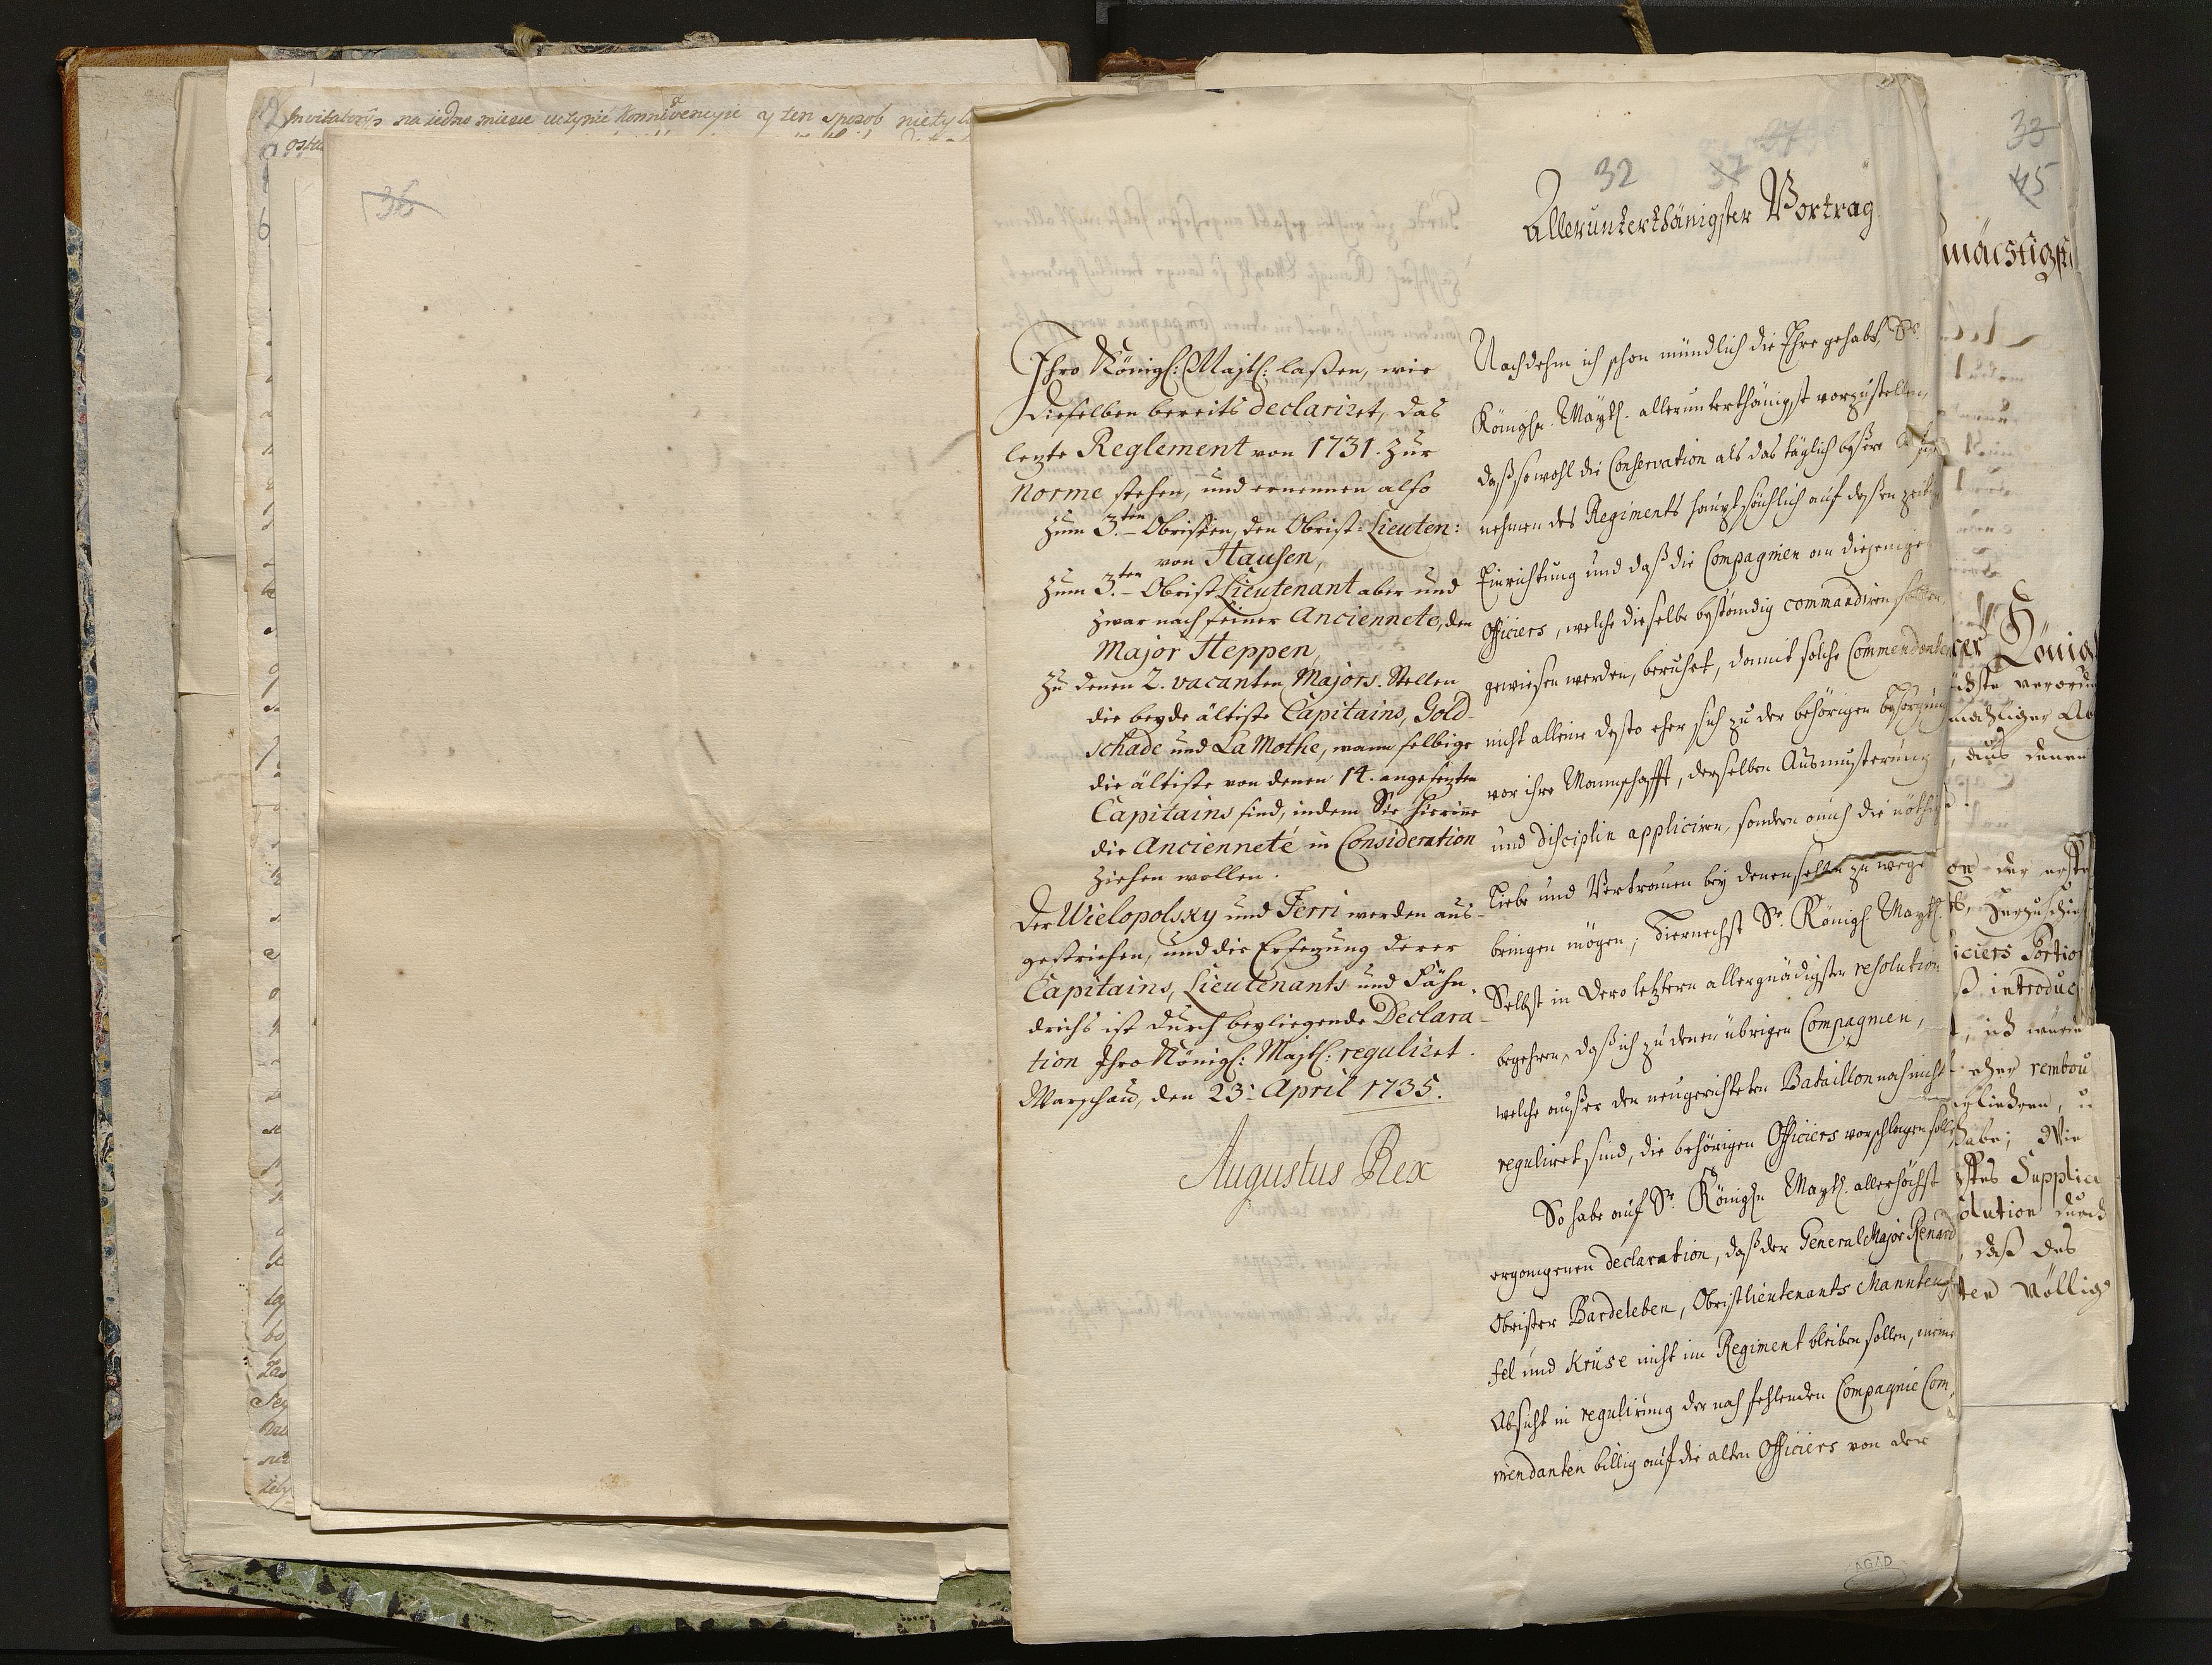 Invitatorÿs na iedno miesce uczynić Konnivencyie y ten sposob
36
32
37
Allerunterthänigster Vortrag
Ihro Königl: Majtl: laßen, wie
dieselben bereits declariret, das
lezte Reglement von 1731. zur
Norme stehen, und ernennen also
zum 3.ten Obristen, den Obrist-Lieuten:
von Hausen,
zum 3.ten Obrist Lieutenant aber und
zwar nach seiner Anciennete, den
Major Heppen,
zu denen 2. vacanten Majors. Stellen
die beyde ältiste Capitains, Gold-
schade und La Mothe, wann selbige
die ältiste von denen 14. angesezten
Capitains sind, indem Sie hierinne
die Ancienneté in Consideration
ziehen wollen.
Der Wielopolsky und Ferri werden aus-
gestrichen, und die Ersezung derer
Capitains, Lieutenants und Fähn-
drichs ist durch beyliegende Declara-
tion Ihro Königl: Majtl: reguliret.
Warschau, den 23. April 1735.
Augustus Rex
Nachdehm ich schon mündlich die Ehre gehabt, Sr.
Königln. Maytl. allerunterthänigst vorzustellen,
daß sowohl die Conservation als das täglich beßere
nehmen des Regiments hauptsächlich auf deßen
Einrichtung und daß die Compagnien an diejenige
Officiers, welche dieselbe beständig commandiren sollen,
gewiesen werden, beruhet, damit solche Commendanten
nicht alleine desto eher sich zu der behörigen Besorgung
vor ihre Mannschafft, derselben Ausmusterung
und Disciplin appliciren, sondern auch die nöthige
Liebe und Vertrauen bey denenselben zu wege
bringen mögen; Hiernechst Sr. Königl Maytl.
Selbst in Dero letztern allergnädigsten resolution
begehren, daß ich zu denen übrigen Compagnien,
welche außer den neugerichteten Bataillon noch nicht
reguliret sind, die behörigen Officiers vorschlagen solle
So habe auf Sr. Königln Maytl. allerhöchst
ergangenen declaration, daß der General Major Renard
Obrister Bardeleben, Obristlieutenants Manteuf-
fel und Kruse nicht im Regiment bleiben sollen, meine
Absicht in regulirung der noch fehlenden Compagnie Com,
mendanten billig auf die alten Officiers von der
AGAD
33
45
mächstigst
König
iciers Portio
introduc
rembou
habe; Wie
Supplic
olution durch
, daß des
ten Völlig